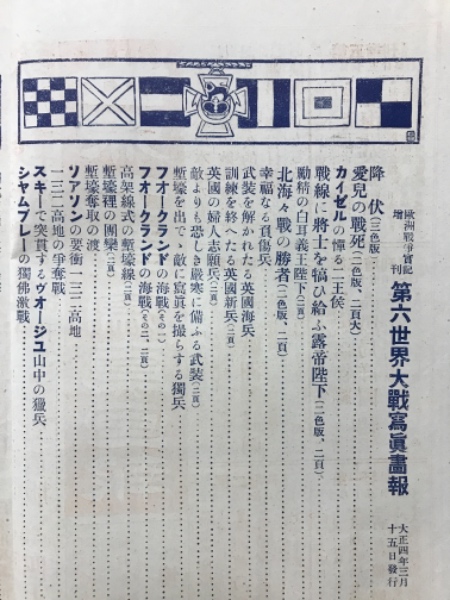 歐洲戰爭實記
增刊
第六世界大戰寫眞畫報
大正四年三月
十五日發行
降伏(三色版)
愛兒の戰死(二色版、二頁大)
カイゼルの憚る二王侯
戰線に將士を犒ひ給ふ露帝陛下(二色版、二頁)
勵精の白耳義王陛下(二頁)
北海々戰の勝者(二色版、二頁)
幸福なる負傷兵
武裝を解かれたる英國海兵
訓練を終へたる英國新兵(二頁)
英國の婦人志願兵(二頁)
敵よりも恐しき嚴寒に備ふる武裝(二頁)
塹壕を出でゝ敵に寫眞を撮らする獨兵
フオークランドの海戰(その一)
フオークランドの海戰(その二、二頁)
高架線式の塹壕線(二頁)
塹壕裡の團欒(二頁)
塹壕奪取の渡
ソアソンの要衝一三二高地
一三二高地の爭奪戰
スキーで突貫するヴオージユ山中の獵兵
シヤムプレーの獨佛激戰